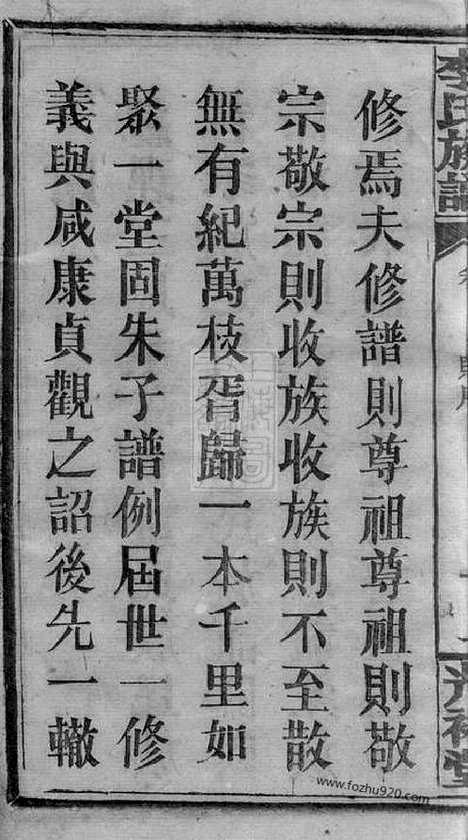 李氏族譜
修焉夫修譜則尊祖尊祖則敬
宗敬宗則收族收族則不至散
無有紀萬枝胥歸一本千里如
聚一堂固朱子譜例屆世一修
義與咸康貞觀之詔後先一轍
www.fozhu920.com